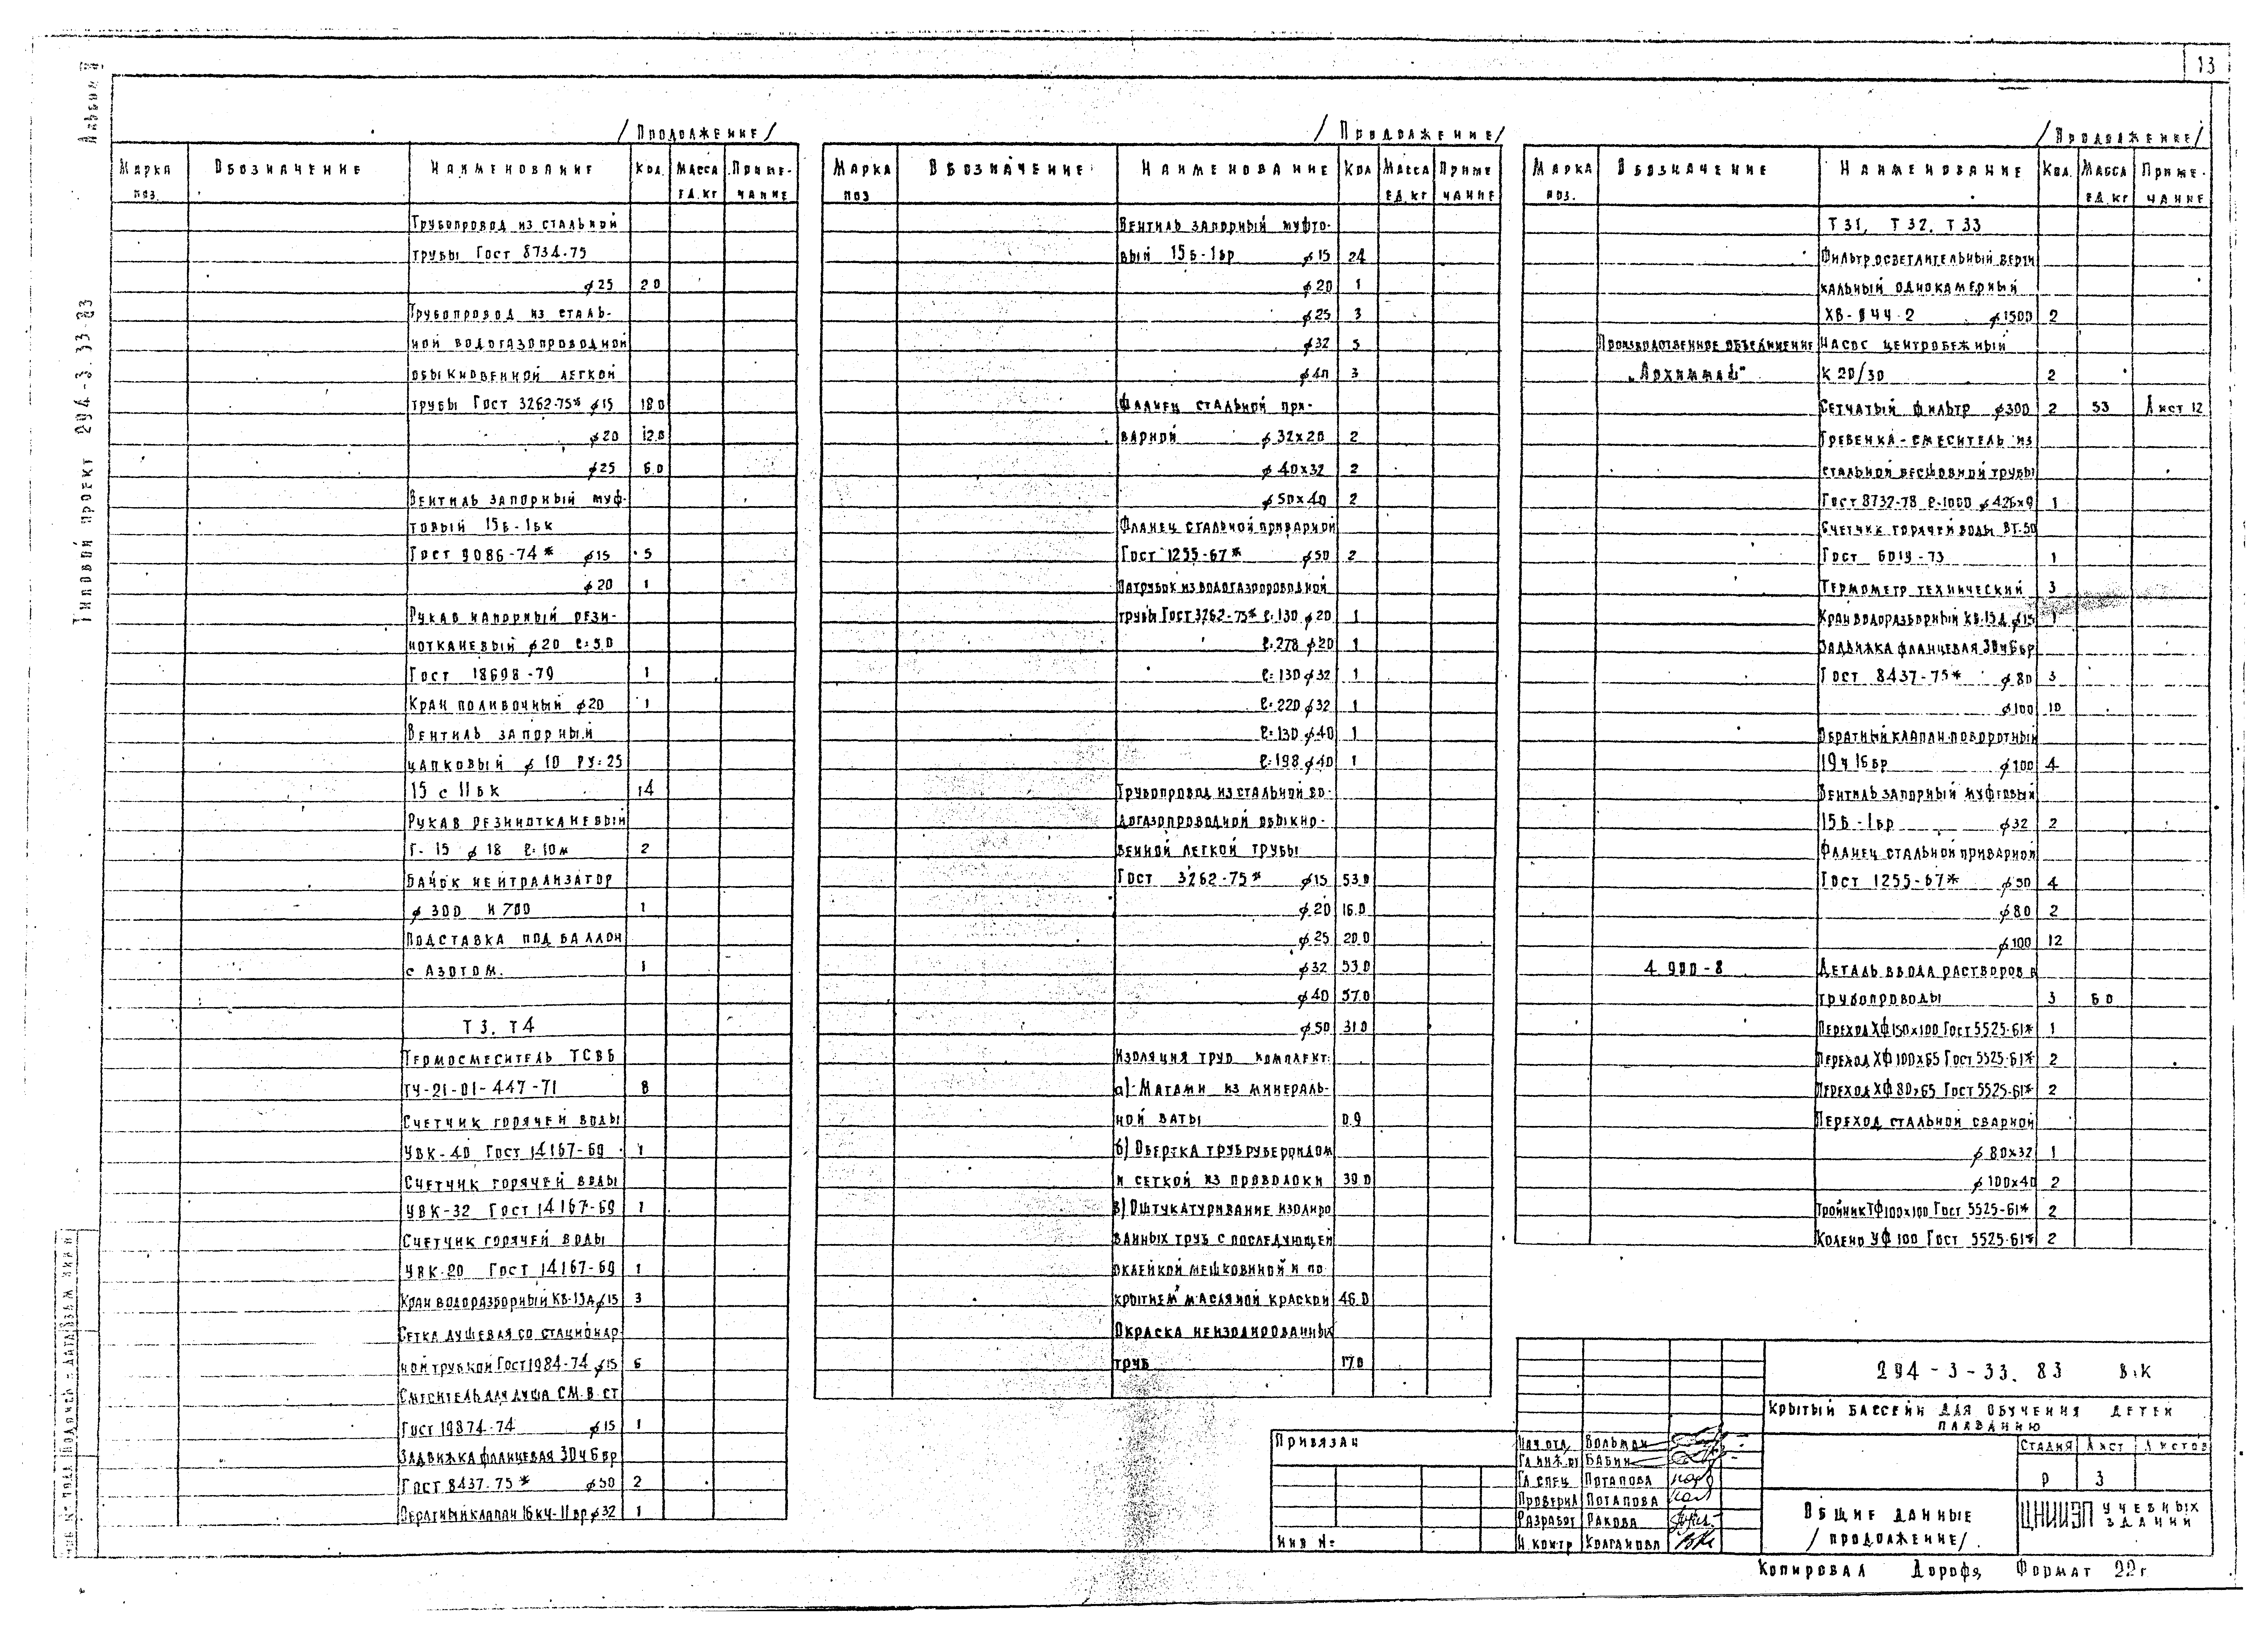 13
Альбом
Типовой проект 294-3-33-83
/Продолжение/
Марка поз. Обозначение Наименование Кол. Масса ед.кг Примечание
Трубопровод из стальной
трубы Гост 8734-75
ф25 20
Трубопровод из сталь-
ной водогазопроводной
обыкновенной легкой
трубы Гост 3262-75* ф15 18.0
ф20 12.0
ф25 6.0
Вентиль запорный муф-
товый 15б-1бк
Гост 9086-74* ф15 5
ф20 1
Рукав напорный рези-
нотканевый ф20 ℓ=50
Гост 18698-79 1
Кран поливочный ф20 1
Вентиль запорный
цапковый ф10 Ру=25
15с11бк 14
Рукав резинотканевый
Г-15 ф18 ℓ=10м 2
Бачок нейтрализатор
ф300 Н700 1
Подставка под баллон
с азотом. 1
Т3, Т4
Термосмеситель ТСВБ
ТУ-21-01-447-71 8
Счетчик горячей воды
УВК-40 Гост 14167-69 1
Счетчик горячей воды
УВК-32 Гост 14167-69 1
Счетчик горячей воды
УВК-20 Гост 14167-69 1
Кран водоразборный КВ-15д ф15 3
Сетка душевая со стационар
ной трубкой Гост 1984-74 ф15 6
Смеситель для душа СМ.В.СТ
Гост 19874-74 ф15 1
Задвижка фланцевая 30ч6бр
Гост 8437-75* ф50 2
Обратный клапан 16кч-11бр ф32 1
/Продолжение/
Марка поз Обозначение Наименование Кол Масса ед.кг Примечание
Вентиль запорный муфто-
вый 15б-1бр ф15 24
ф20 1
ф25 3
ф32 5
ф40 3
Фланец стальной при-
варной ф32х20 2
ф40х32 2
ф50х40 2
Фланец стальной приварной
Гост 1255-67* ф50 2
Патрубок из водогазопроводной
трубы Гост 3262-75* ℓ=130 ф20 1
ℓ=278 ф20 1
ℓ=130 ф32 1
ℓ=220 ф32 1
ℓ=130 ф40 1
ℓ=198 ф40 1
Трубопровод из стальной во-
догазопроводной обыкно-
венной легкой трубы
Гост 3262-75* ф15 53.0
ф20 16.0
ф25 20.0
ф32 53.0
ф40 57.0
ф50 31.0
Изоляция труб комплект:
а) Матами из минераль-
ной ваты 0.9
б) Обертка труб рубероидом
и сеткой из проволоки 39.0
в) Оштукатуривание изолиро
ванных труб с последующей
оклейкой мешковиной и по
крытием масляной краской 46.0
Окраска неизолированных
труб 17.0
/Продолжение/
Марка поз. Обозначение Наименование Кол. Масса ед.кг Примечание
Т31, Т32, Т33
Фильтр осветлительный верти
кальный однокамерный
ХВ-944-2 ф1500 2
Производственное объединение Насос центробежный
„Архимед" К 20/30 2
Сетчатый фильтр ф300 2 53 Лист 12
Гребенка-смеситель из
стальной бесшовной трубы
Гост 8732-78 ℓ-1000 ф426х9 1
Счетчик горячей воды ВТ-50
Гост 6019-73 1
Термометр технический 3
Кран водоразборный КВ-15д ф15 1
Задвижка фланцевая 30ч6бр
Гост 8437-75* ф80 3
ф100 10
Обратный клапан поворотный
19ч16бр ф100 4
Вентиль запорный муфтовый
15б-1бр ф32 2
Фланец стальной приварной
Гост 1255-67* ф50 4
ф80 2
ф100 12
4 900-8 Деталь ввода растворов в
трубопроводы 3 6.0
Переход ХФ150х100 Гост 5525-61* 1
Переход ХФ100х65 Гост 5525-61* 2
Переход ХФ80х65 Гост 5525-61* 2
Переход стальной сварной
ф80х32 1
ф100х40 2
Тройник ТФ100х100 Гост 5525-61* 2
Колено УФ100 Гост 5525-61* 2
Привязан
Инв №
Нач.отд. Вольман
Гл.инж.пр Бабин
Гл.спец. Потапова
Проверил Потапова
Разработ Ракова
Н.контр Колганова
294-3-33.83 В.К
Крытый бассейн для обучения детей
плаванию
Стадия Лист Листов
Р 3
Общие данные
/продолжение/
ЦНИИЭП учебных зданий
Копировал Дорофя Формат 22г